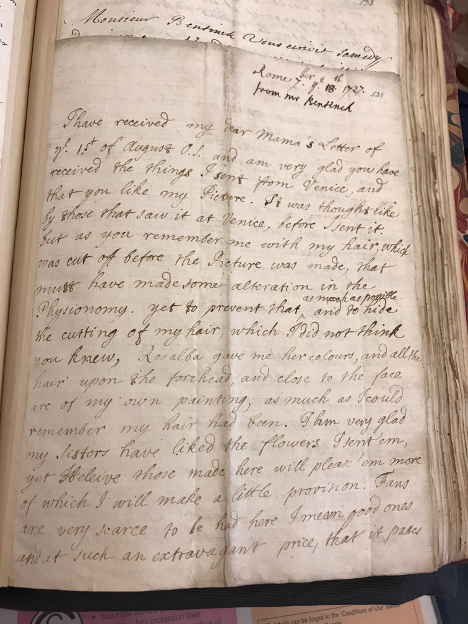 Monsieur Bentinck Vous ecrit samedy
Rome 7ber ye 13th 1727.
from mr Bentinck
I have received my dear Mama's Letter of
ye 15t of August O.S. and am very glad you have
received the things I sent from Venice, and
that you like my Picture. It was thought like
by those that saw it at Venice, before I sent it,
but as you remember me with my hair, which
was cut off before the Picture was made, that
must have made some alteration in the
Physionomy. yet to prevent that as much as possible, and to hide
the cutting of my hair, which I did not think
you knew, Rosalba gave me her colours, and all the
hair upon the forehead, and close to the face
are of my own painting, as much as I could
remember my hair had been. I am very glad
my Sisters have liked the flowers I sent 'em,
yet I beleive those made here will please 'em more
of which I will make a little provision. Fans
are very scarce to be had here I mean good ones
and at such an extravagant price, that it makes